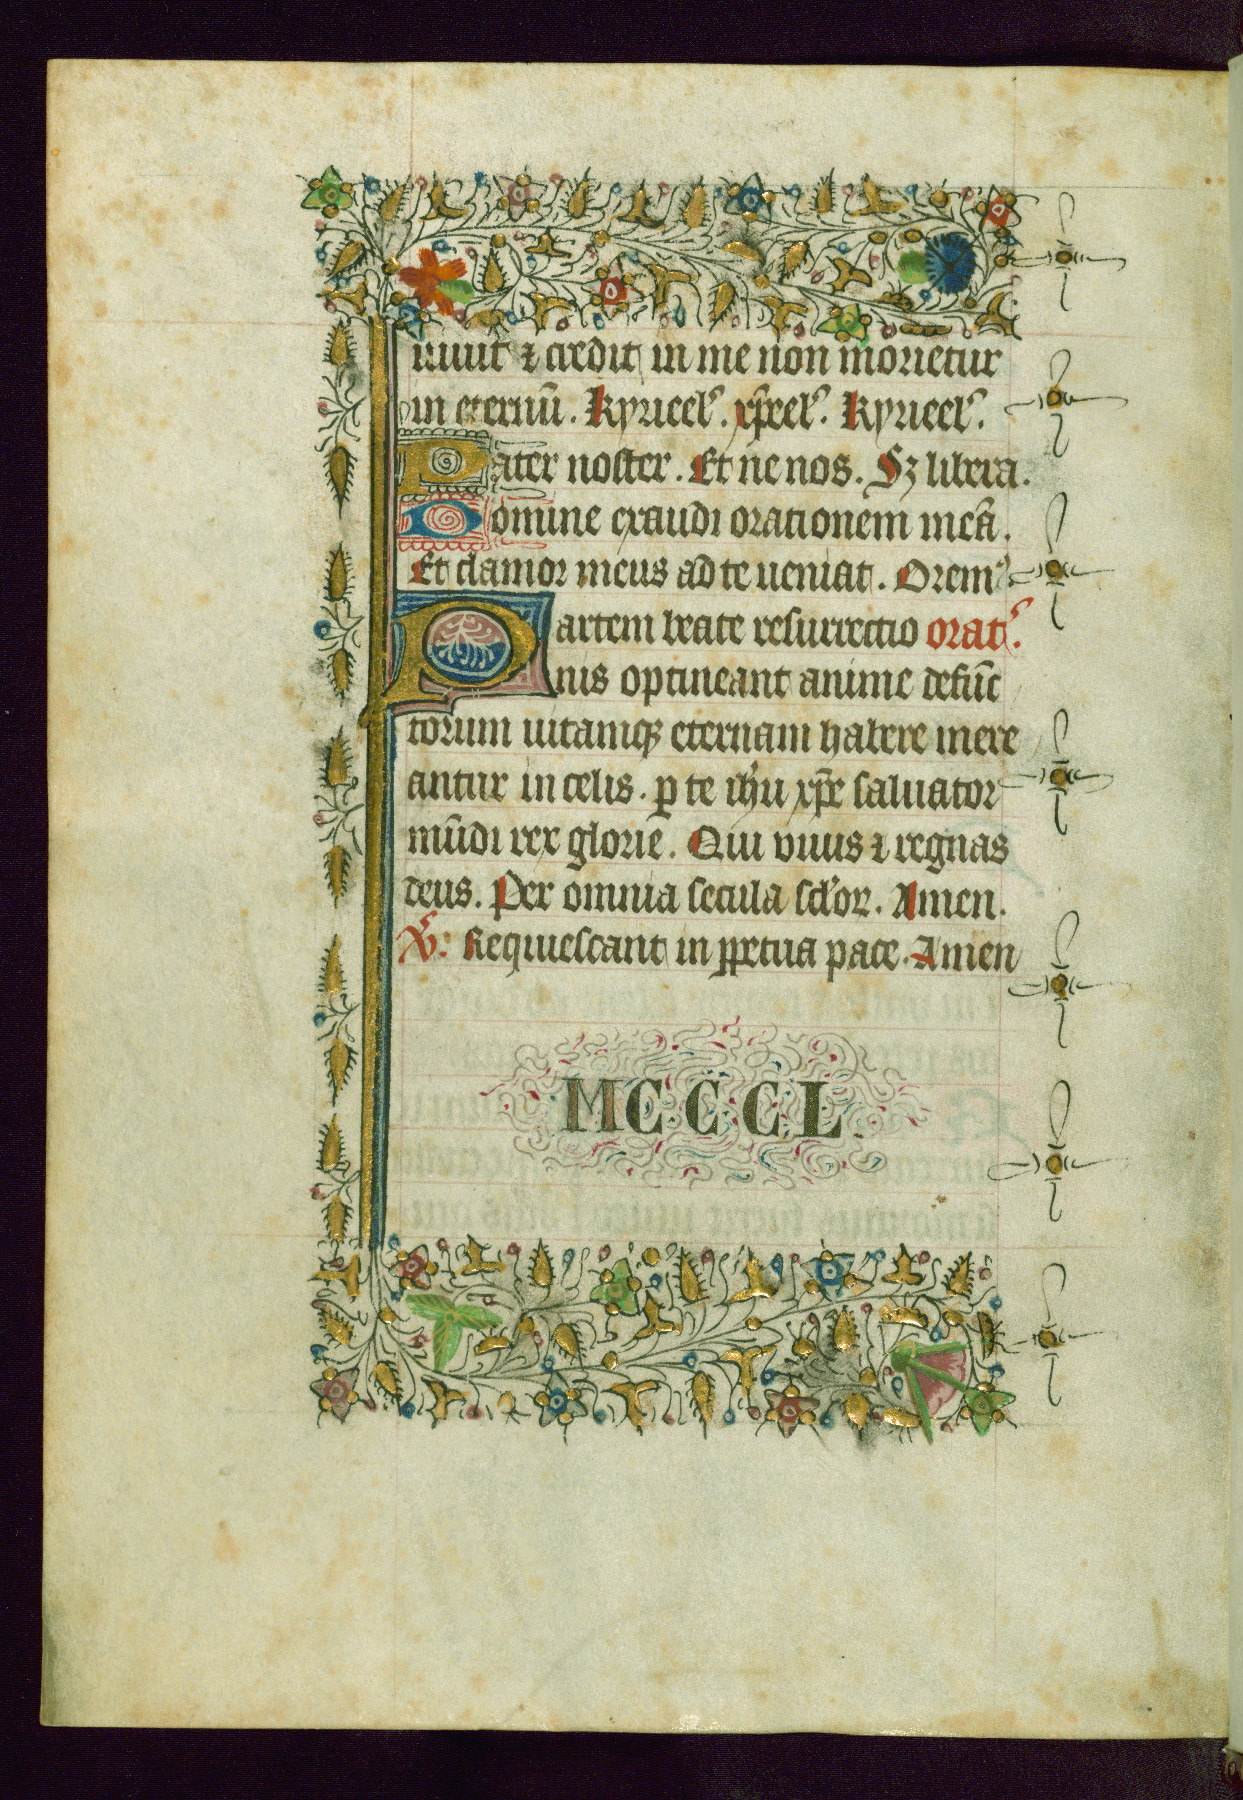 uiuit ⁊ credit in me non morietur
in eternū. Kyrieel᾽. xp̄eel᾽. Kyrieel᾽.
Pater noster. Et ne nos. Sꝫ libera.
Domine exaudi orationem meā.
Et clamor meus ad te ueniat. Orem᾽
Partem beate resurrectio orat᾽.
nis optineant anime defūc
torum uitamqꝫ eternam habere mere
antur in celis. ꝑ te ihū xp̄e saluator
mūdi rex glorie. Qui viuus ⁊ regnas
deus. Per omnia secula sc̄lor. Amen.
℣. Requiescant in ꝑpetua pace. Amen
MCCCL.